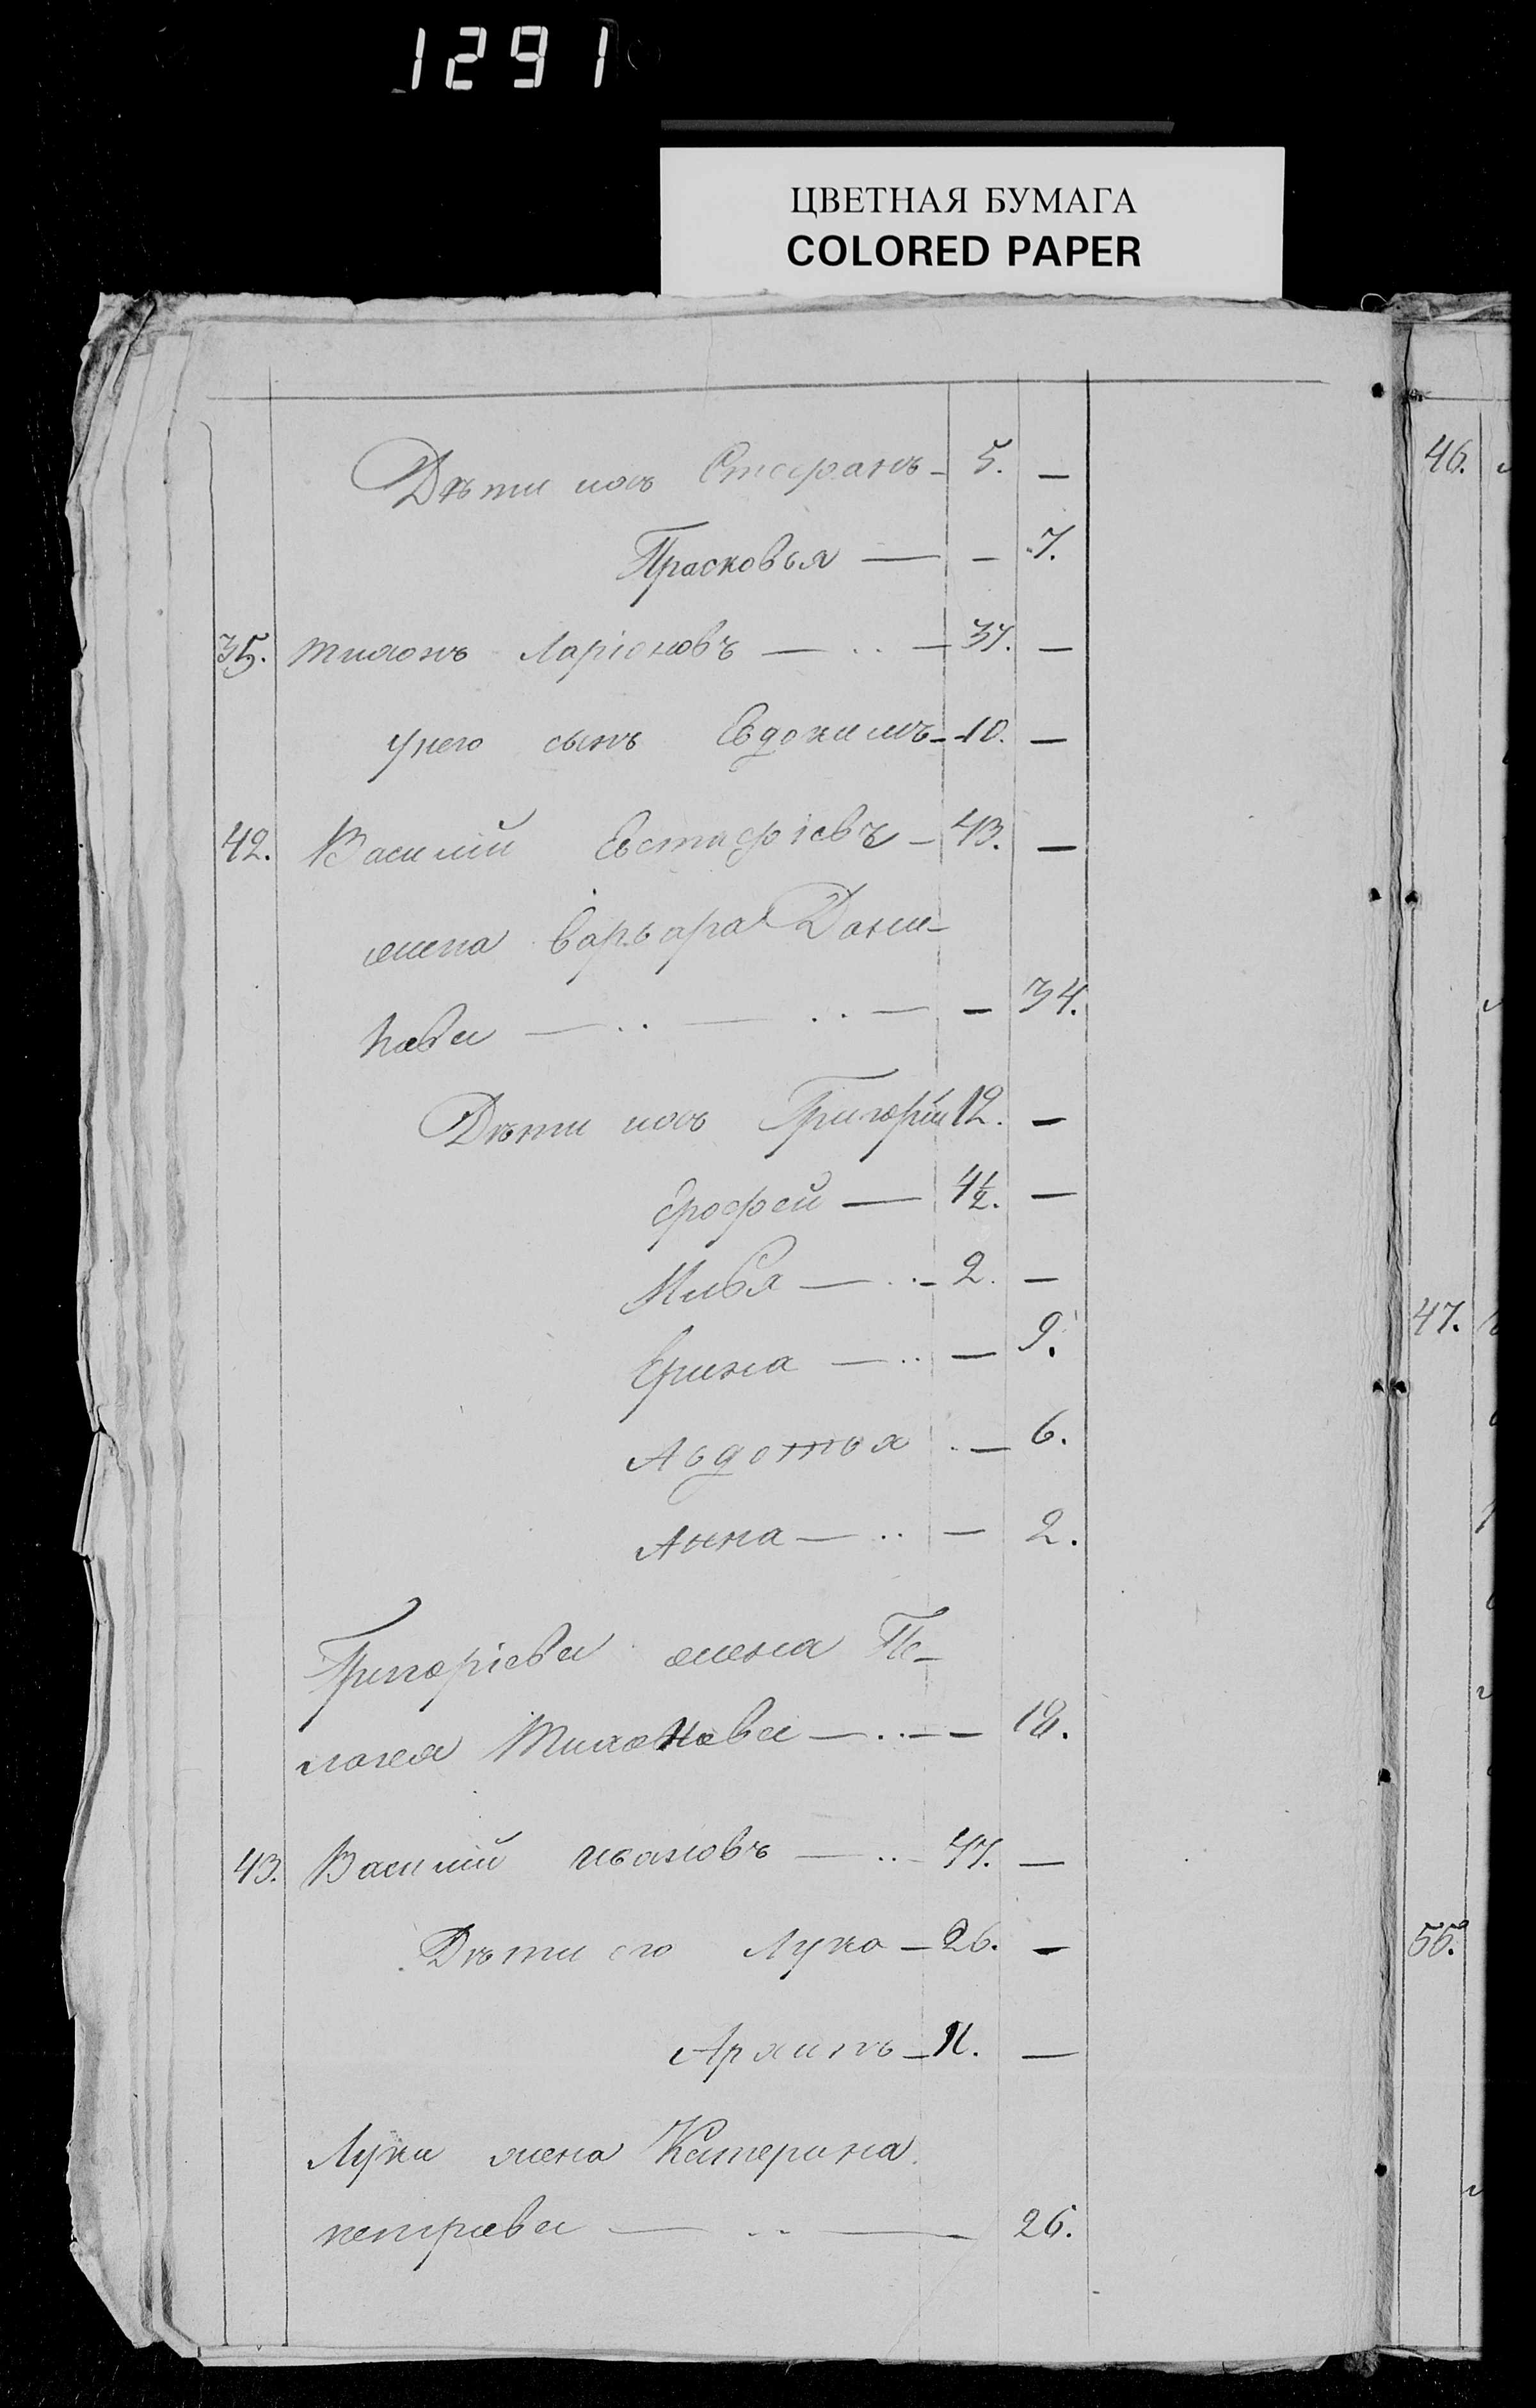 1291
ЦВЕТНАЯ БУМАГА
COLORED PAPER
Дѣти ихъ Стефанъ – 5. –
Прасковья – – 7.
35. тихонъ Ларіоновъ – 37. –
унего сынъ Евдокимъ – 10. –
42. Василій Евстафіевъ – 43. –
жена варвара Дани–
лова – – 34.
Дѣти ихъ Григорій 12. –
Ерофей – 4½. –
Илья – 2. –
Ерина – – 9.
Авдотья – 6.
Анна – – 2.
Григоріева жена Пе–
лагея Тихонова – – 18.
43. Василій ивановъ – 47. –
Дѣти его Лука – 26. –
Архипъ – 11. –
Луки жена Катерина
петрова – 26.
46.
47.
55.